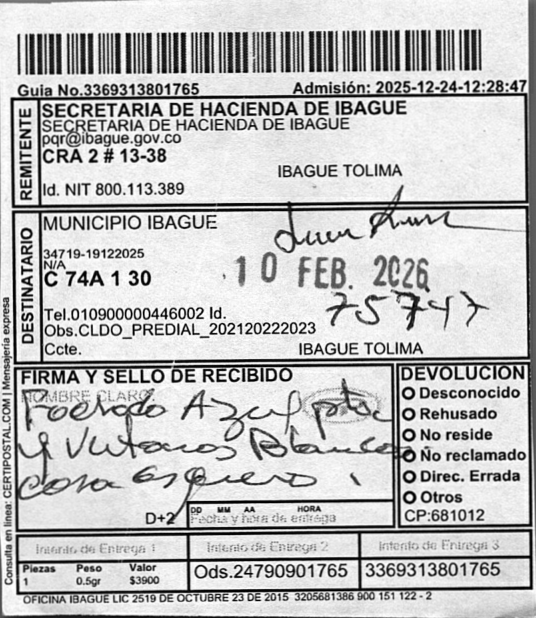 Guia No.3369313801765 Admisión: 2025-12-24-12:28:47
REMITENTE
SECRETARIA DE HACIENDA DE IBAGUE
SECRETARIA DE HACIENDA DE IBAGUE
pqr@ibague.gov.co
CRA 2 # 13-38
IBAGUE TOLIMA
Id. NIT 800.113.389
DESTINATARIO
MUNICIPIO IBAGUE
34719-19122025
N/A
C 74A 1 30
10 FEB. 2026
75747
Tel.010900000446002 Id.
Obs.CLDO_PREDIAL_202120222023
Ccte. IBAGUE TOLIMA
FIRMA Y SELLO DE RECIBIDO
NOMBRE CLARO
Azul
y Blancos
casa
D+2
DD MM AA HORA
Fecha y hora de entrega
DEVOLUCION
Desconocido
Rehusado
No reside
No reclamado
Direc. Errada
Otros
CP:681012
Intento de Entrega 1 Intento de Entrega 2 Intento de Entrega 3
Piezas Peso Valor
1 0.5gr $3900
Ods.24790901765
3369313801765
OFICINA IBAGUE LIC 2519 DE OCTUBRE 23 DE 2015 3205681386 900 151 122 - 2
Consulta en línea: CERTIPOSTAL.COM | Mensajería expresa